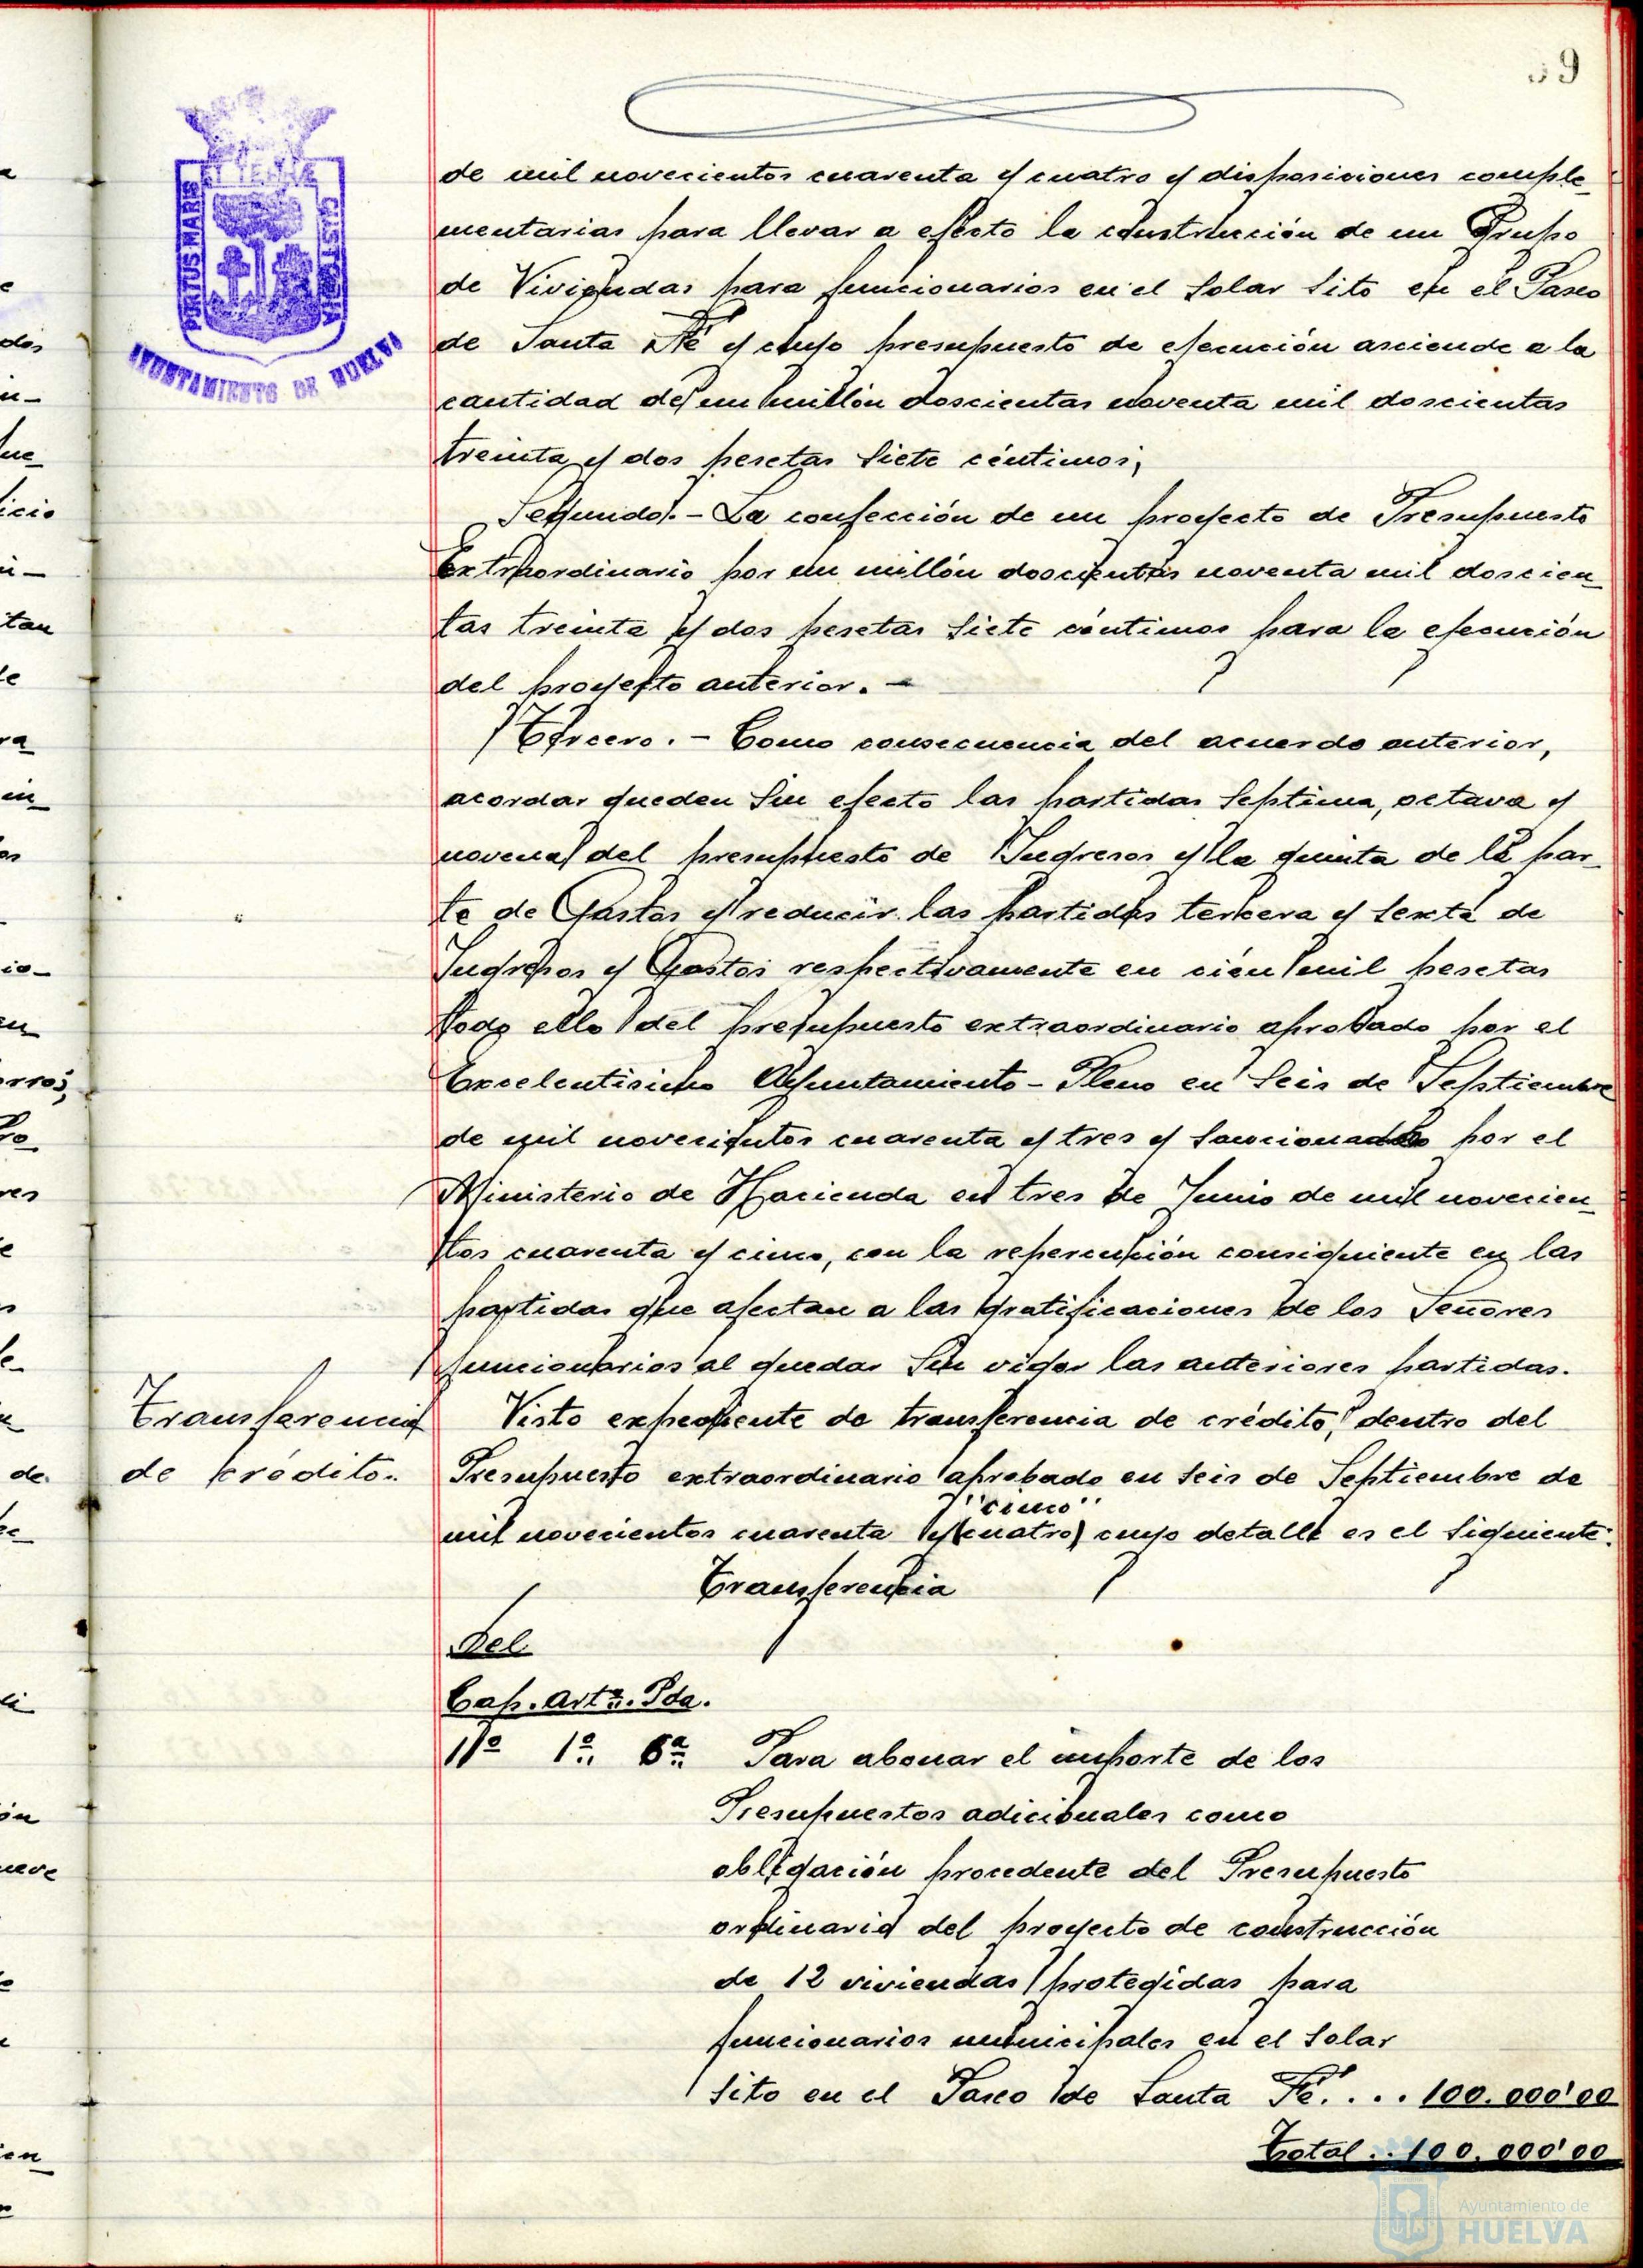 59
PORTUS MARIS
ET TERRÆ
CUSTODIA
AYUNTAMIENTO DE HUELVA
de mil novecientos cuarenta y cuatro y disposiciones comple_
mentarias para llevar a efecto la construcción de un Grupo
de Viviendas para funcionarios en el solar sito en el Paseo
de Santa Fé y cuyo presupuesto de ejecución asciende a la
cantidad de un millón doscientas noventa mil doscientas
treinta y dos pesetas siete céntimos;
Segundo.- La confección de un proyecto de Presupuesto
Extraordinario por un millón doscientas noventa mil doscien_
tas treinta y dos pesetas siete céntimos para la ejecución
del proyecto anterior.-
Tercero.- Como consecuencia del acuerdo anterior,
acordar queden sin efecto las partidas septima, octava y
novena del presupuesto de Ingresos y la quinta de la par_
te de Gastos y reducir las partidas tercera y sexta de
Ingresos y Gastos respectivamente en cien mil pesetas
todo ello del presupuesto extraordinario aprobado por el
Excelentisimo Ayuntamiento-Pleno en seis de Septiembre
de mil novecientos cuarenta y tres y sancionado por el
Ministerio de Hacienda en tres de Junio de mil novecien_
tos cuarenta y cinco, con la repercusión consiguiente en las
partidas que afectan a las gratificaciones de los Señores
funcionarios al quedar sin vigor las anteriores partidas.
Transferencia
de crédito..
Visto expediente de transferencia de crédito, dentro del
Presupuesto extraordinario aprobado en seis de Septiembre de
"cinco"
mil novecientos cuarenta y (cuatro) cuyo detalle es el siguiente:
Transferencia
Del
Cap. Artº. Pda.
11º 1º. 6ª. Para abonar el importe de los
Presupuestos adicionales como
obligación procedente del Presupuesto
ordinario del proyecto de construcción
de 12 viviendas protegidas para
funcionarios municipales en el solar
sito en el Paseo de Santa Fé.... 100.000'00
Total.. 100.000'00
Ayuntamiento de
HUELVA